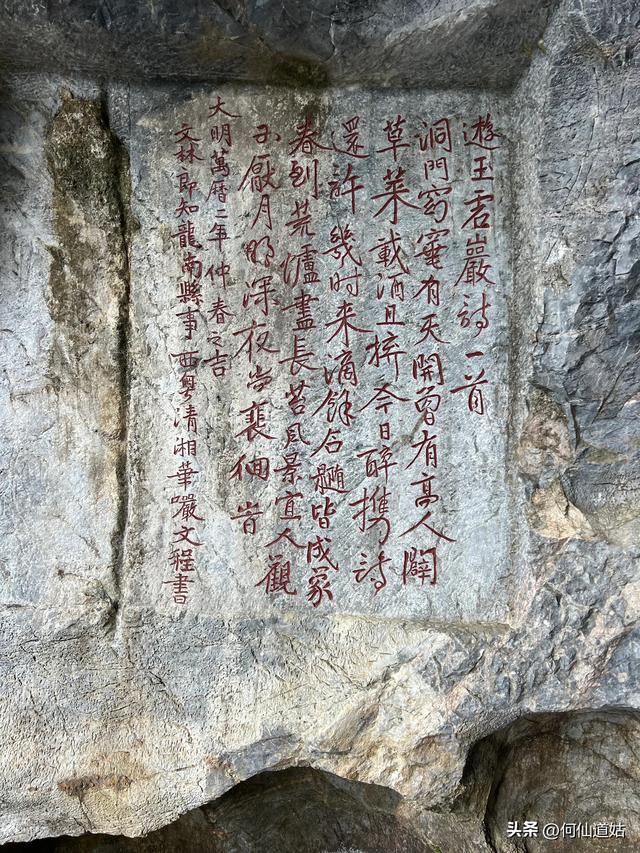 遊巖詩一首
洞門窈窕有天開曾有高人闢
草萊載酒且拚今日醉攜詩
還許幾时来滴餘石髓皆成象
春到荒爐盡長苔風景宜人觀
不厭月明深夜尚裴徊旹
大明萬曆二年仲春之吉
文林郎知龍南縣事西粵清湘華巖文程書
头条 @何仙道姑